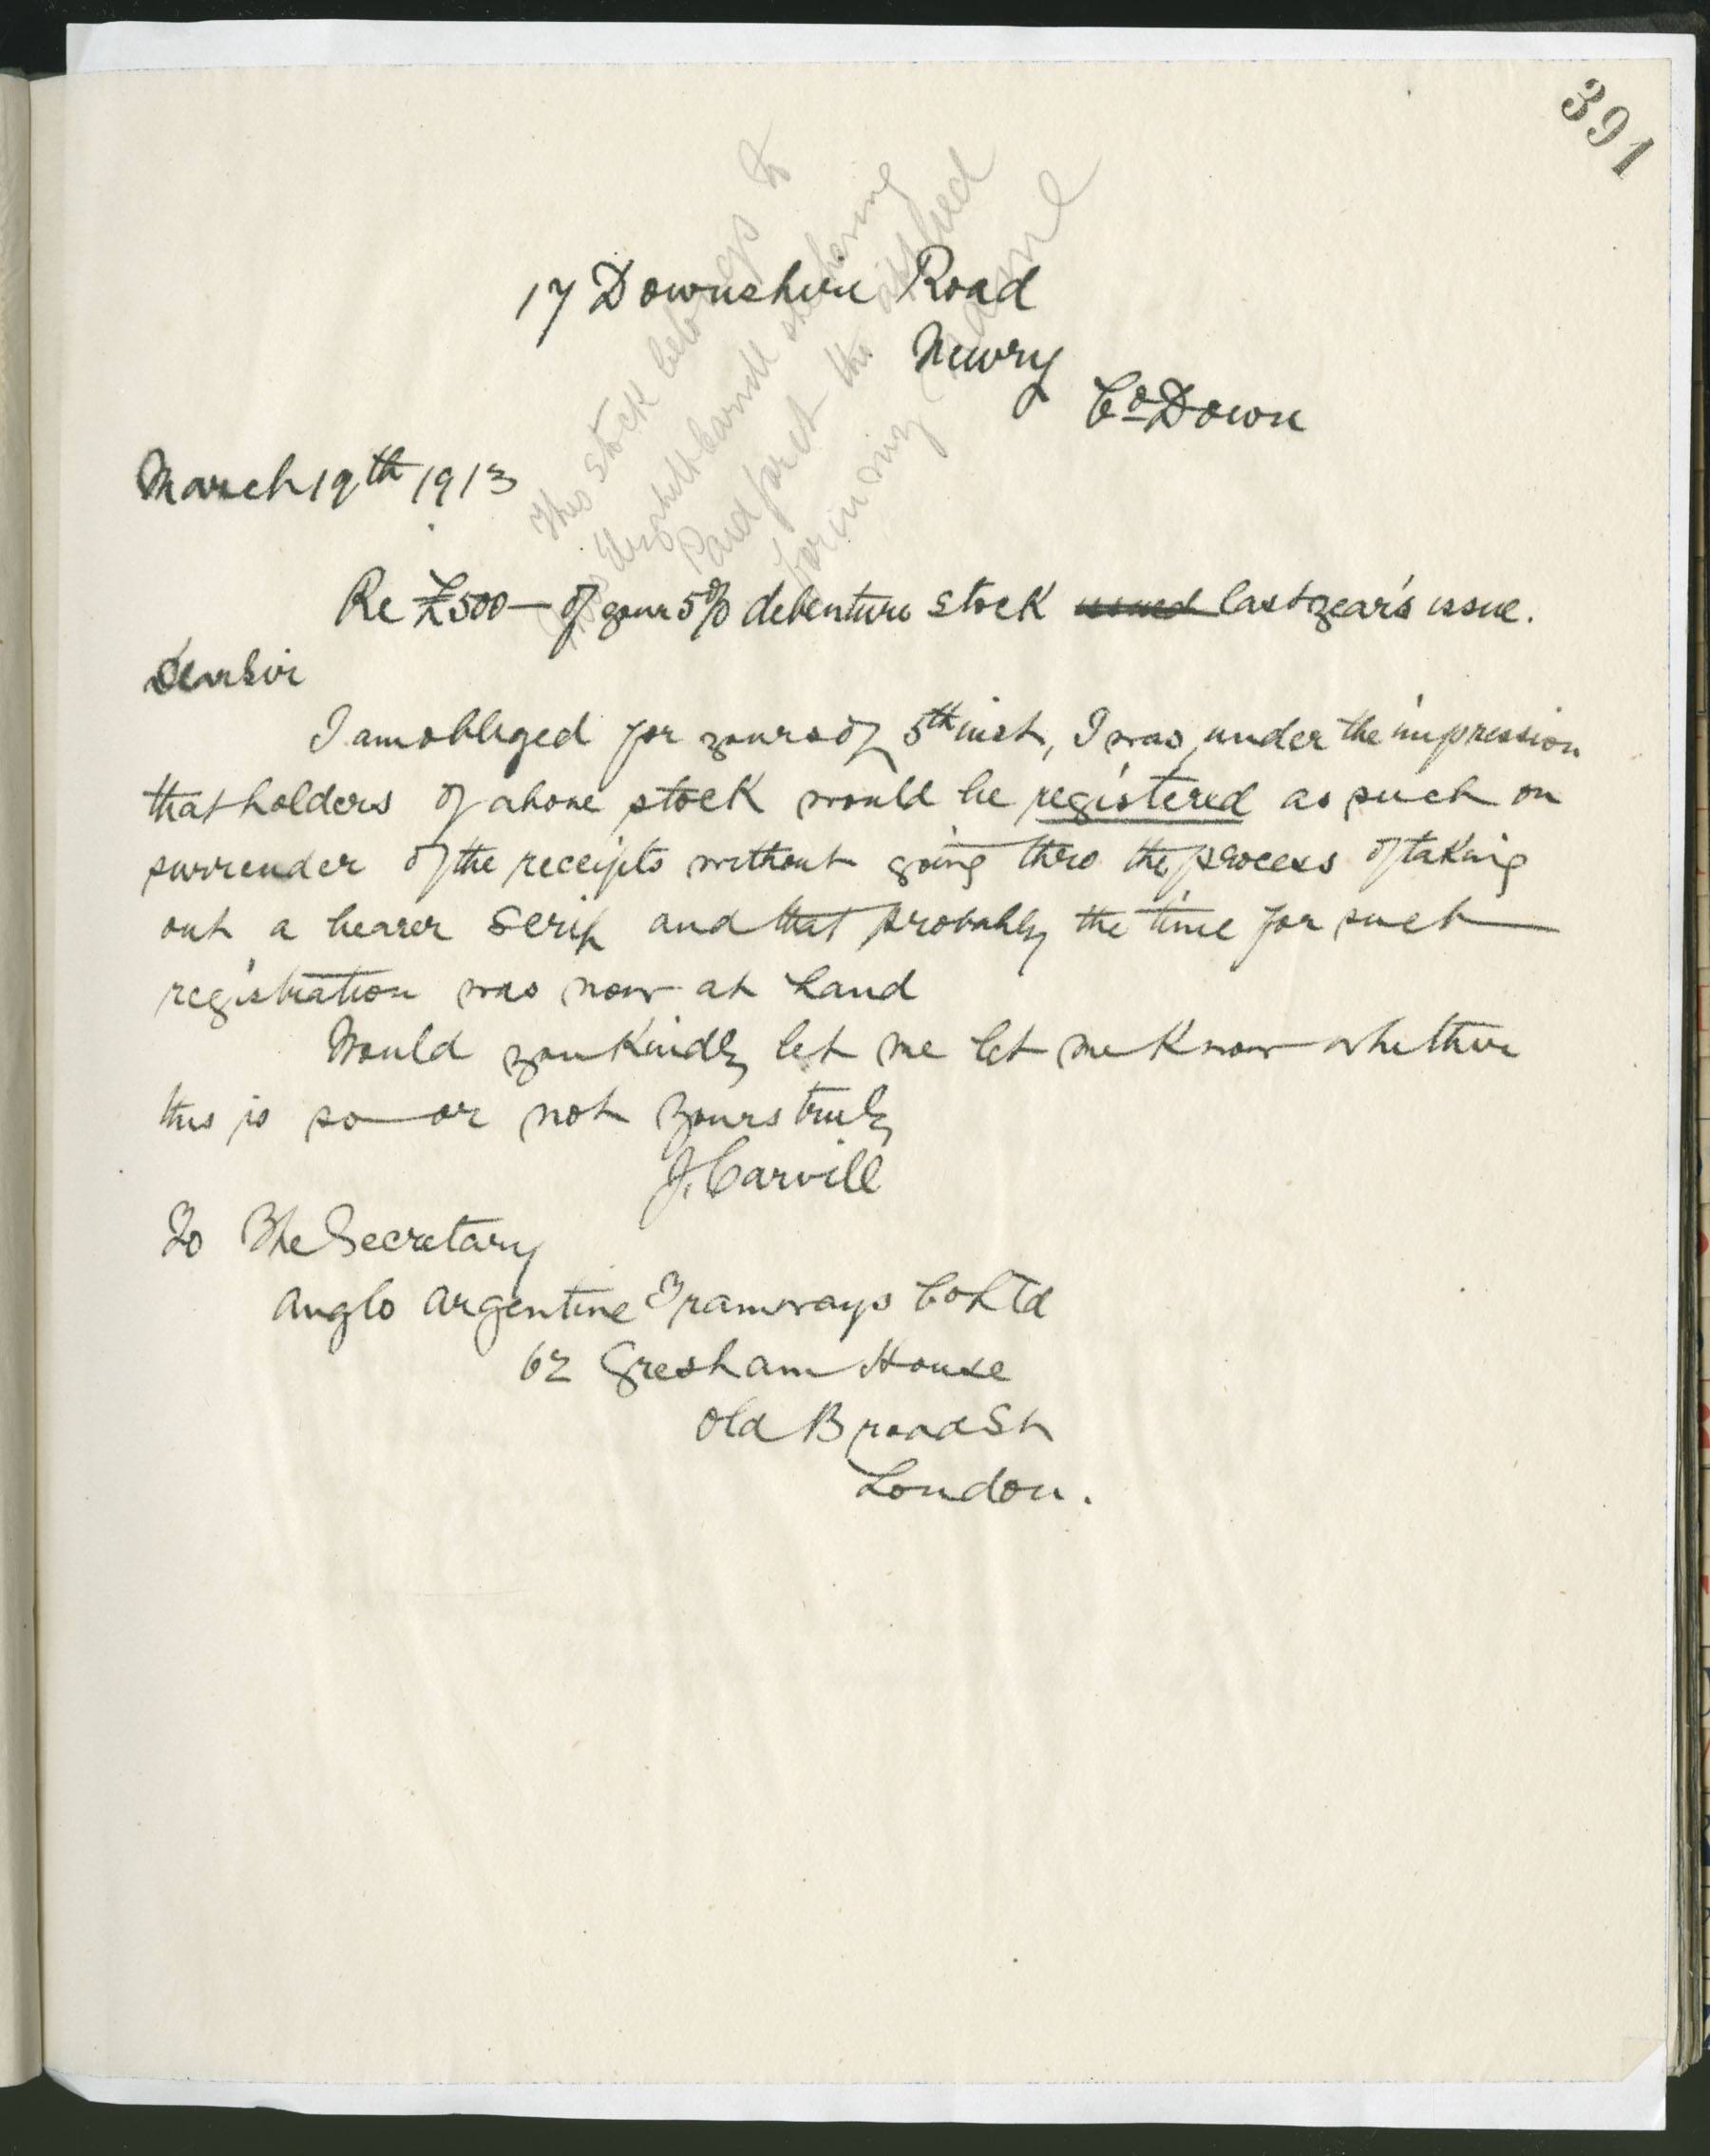 391
17 Downshire Road
Newry
Co Down
March 19th 1913
This stock belongs to
Miss Carvill she having
Paid for it tho applied
for in my name
Re £500 — of your 5% debenture stock issued last year's issue.
Dear Sir
I am obliged for yours of 5th inst, I was under the impression
that holders of above stock would be registered as such on
surrender of the receipts without going thro the process of taking
out a bearer scrip and that probably the time for such
registration was now at hand
Would you kindly let me let me know whether
this is so or not yours truly
J. Carvill
To The Secretary
Anglo Argentine Tramways Co Ltd
62 Gresham House
Old Broad St
London.